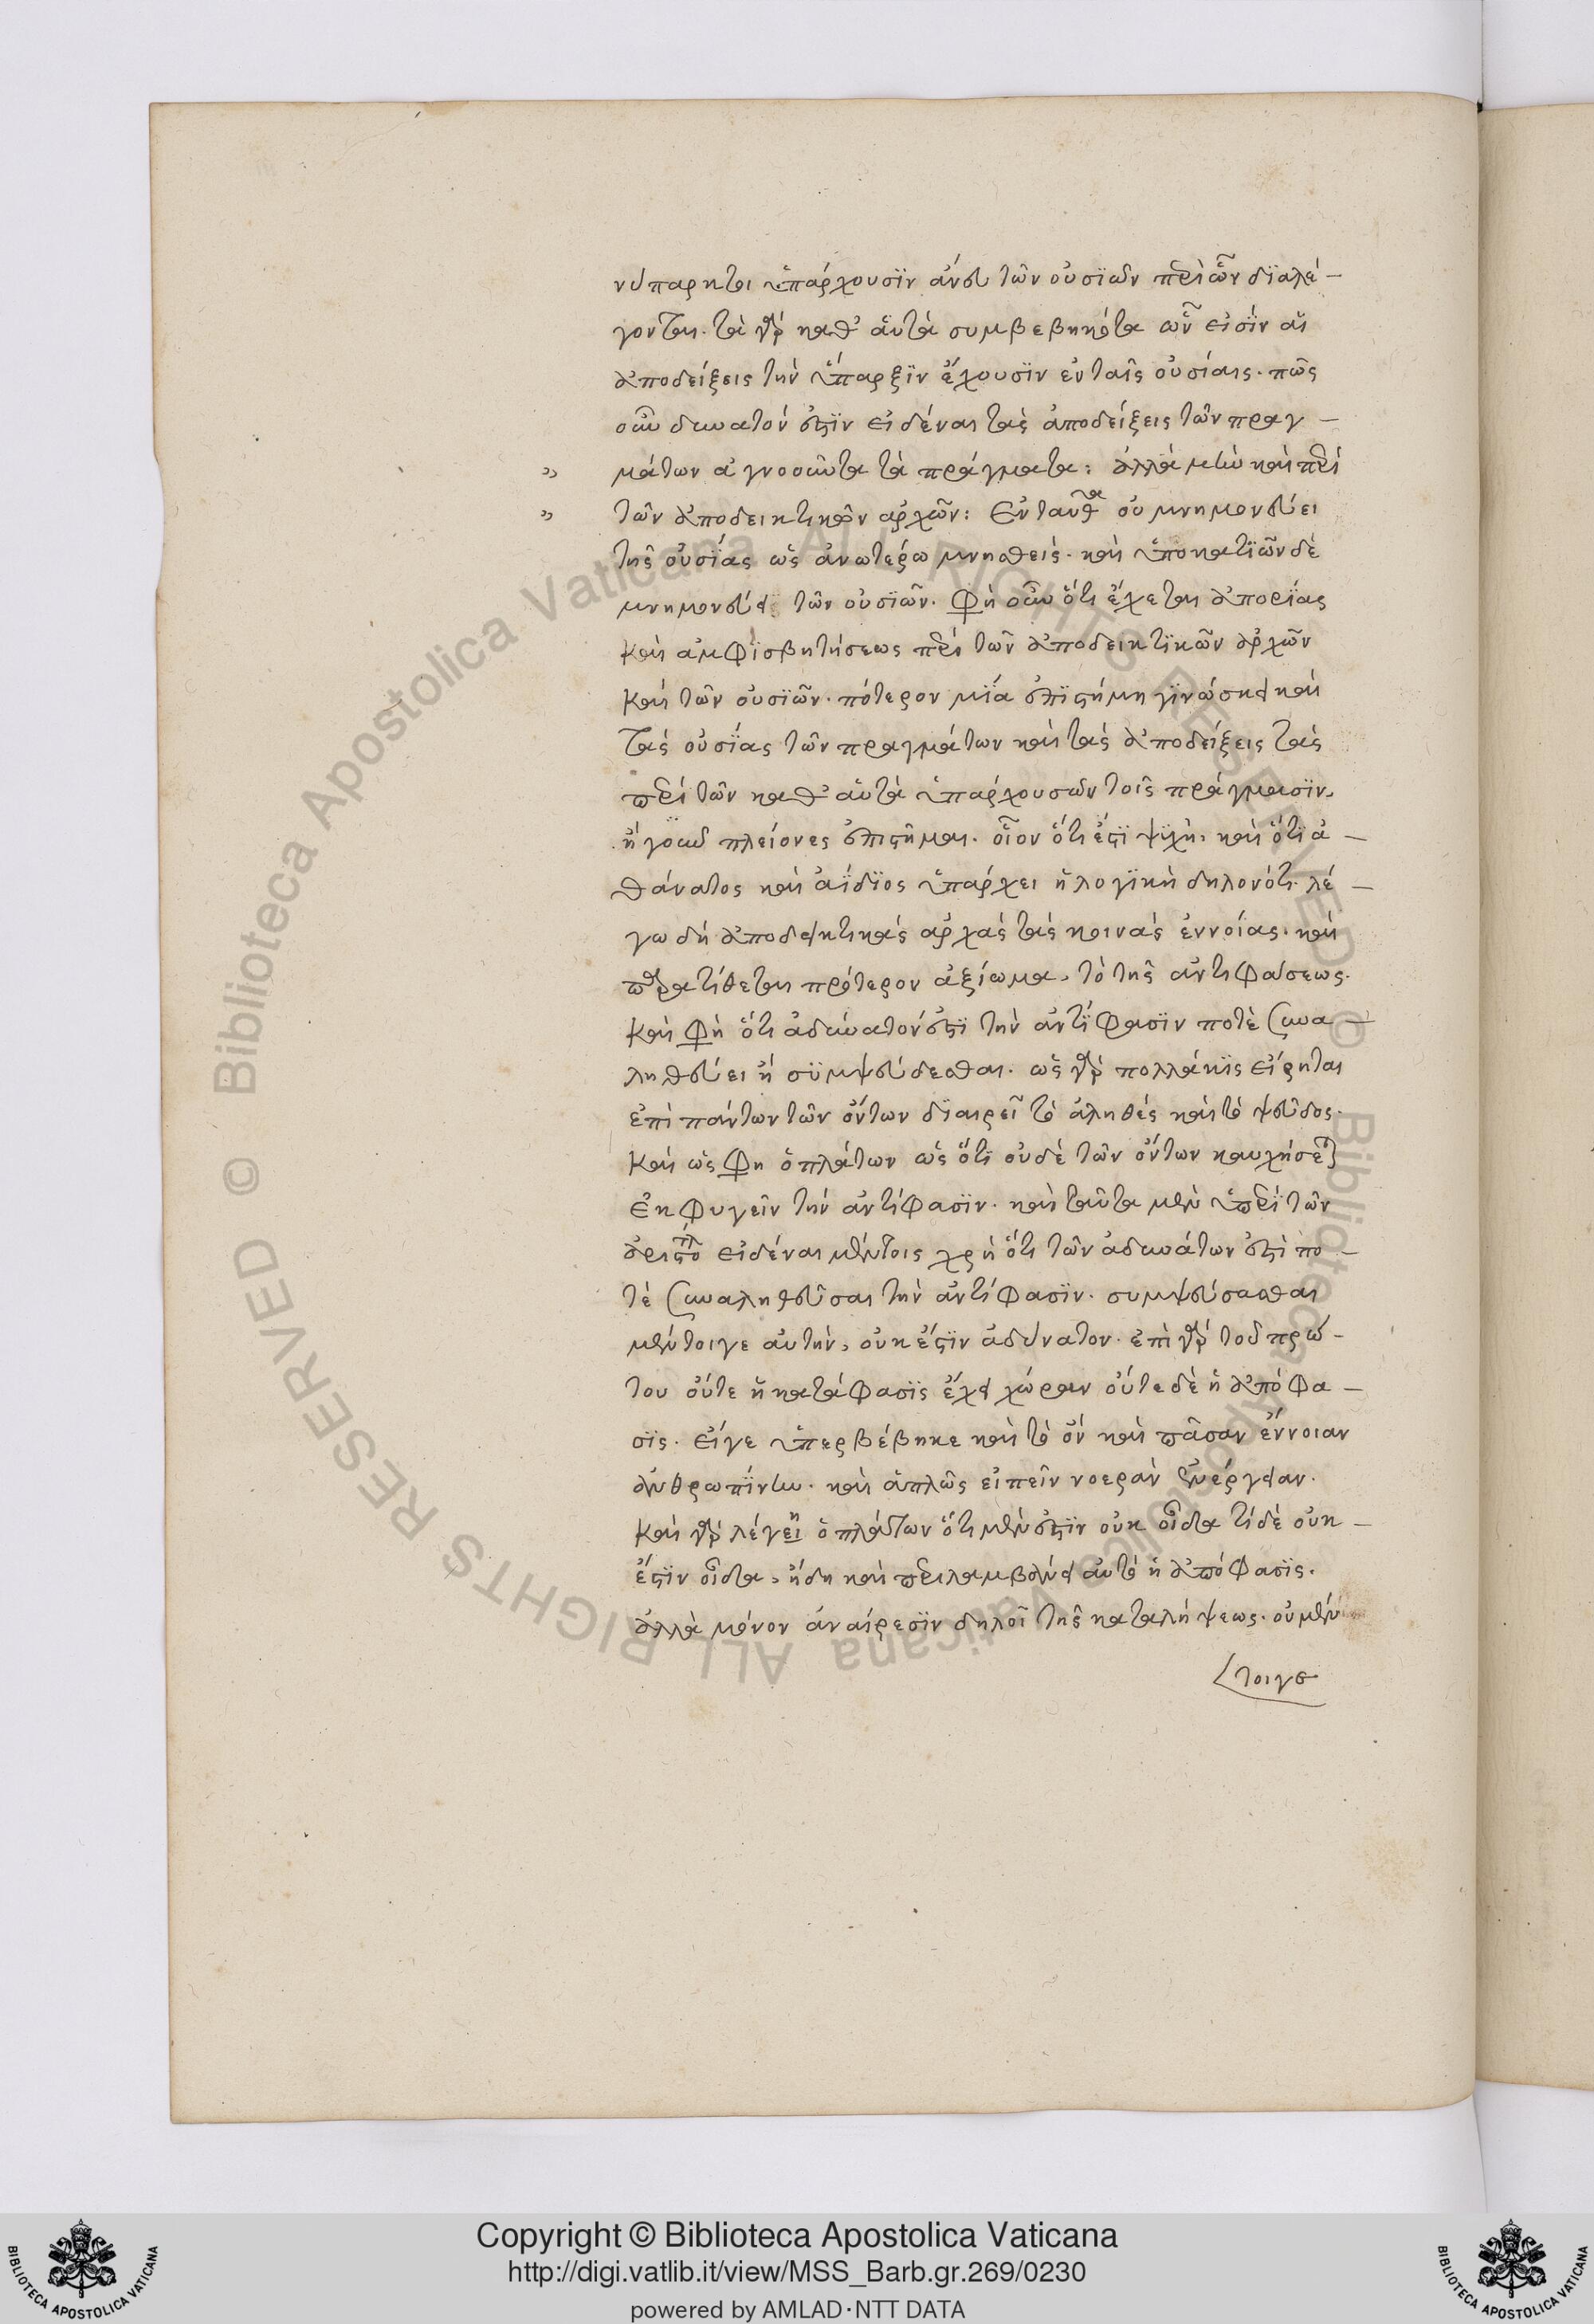 νύπαρκτοι ὑπάρχουσϊν ἄνευ τῶν οὐσϊῶν περὶ ὧν δϊαλέ-
γονται. τὰ γὰρ καθ' αὑτὰ συμβεβηκότα ὧν εἰσῒν αἱ
ἀποδείξεις τὴν ὕπαρξϊν ἔχουσϊν ἐν ταῖς οὐσίαις. πῶς
οὖν δυνατόν ἐστϊν εἰδέναι τὰς ἀποδείξεις τῶν πραγ-
" μάτων ἀγνοοῦντα τὰ πράγματα: ἀλλὰ μὴν καὶ περὶ
" τῶν ἀποδεικτικῶν ἀρχῶν: Ἐνταῦθα οὐ μνημονεύει
τῆς οὐσΐας ὡς ἀνωτέρω μνησθείς. καὶ ὑποκατϊὼν δὲ
μνημονεύει τῶν οὐσϊῶν. φη οὖν ὅτι ἔχεται ἀπορΐας
καὶ ἀμφϊσβητήσεως περὶ τῶν ἀποδεικτϊκῶν ἀρχῶν
καὶ τῶν οὐσϊῶν. πότερον μΐα ἐπϊστήμη γϊνώσκει καὶ
τὰς οὐσΐας τῶν πραγμάτων καὶ τὰς ἀποδείξεις τὰς
περὶ τῶν καθ' αὑτὰ ὑπαρχουσῶν τοῖς πράγμασϊν,
ἤγουν πλείονες ἐπιστῆμαι. οἷον ὅτι ἔστϊ ψϋχὴ, καὶ ὅτϊ ἀ-
θάνατος καὶ ἀΐδϊος ὑπάρχει ἡ λογϊκὴ δηλονότι. λέ-
γω δὴ ἀποδεικτικὰς ἀρχὰς τὰς κοινὰς ἐννοίας. καὶ
παρατίθεται πρότερον ἀξίωμα, τὸ τῆς ἀντιφάσεως.
καὶ φη ὅτι ἀδύνατόν ἐστϊ τὴν ἀντΐφασϊν ποτὲ συνα-
ληθεύει ἢ σϋμψεύδεσθαι. ὡς γὰρ πολλάκϊς εἴρηται
ἐπὶ πάντων τῶν ὄντων δϊαιρεῖ τὸ ἀληθές καὶ τὸ ψεῦδος.
καὶ ὥς φη ὁ πλάτων ὡς ὅτϊ οὐδὲ τῶν ὄντων καυχήσεται
ἐκφυγεῖν τὴν ἀντίφασϊν. καὶ ταῦτα μὲν ὑπερὶ τῶν
ἀριστοπλ εἰδέναι μέντοις χρὴ ὅτι τῶν ἀδυνάτων ἐστὶ πο-
τὲ συναληθεῦσαι τὴν ἀντίφασϊν. συμψεύσασθαι
μέντοιγε αὐτὴν, οὐκ ἔστϊν ἀδύνατον. ἐπὶ γὰρ τοῦ πρώ-
του οὔτε ἡ κατάφασϊς ἔχει χώραν οὔτε δὲ ἡ ἀπόφα-
σϊς. εἴγε ὑπερβέβηκε καὶ τὸ ὂν καὶ πᾶσαν ἔννοιαν
ἀνθρωπΐνην. καὶ ἁπλῶς εἰπεῖν νοερὰν ἐνέργειαν.
καὶ γὰρ λέγει ὁ πλάτων ὅτι μέν ἐστϊν οὐκ οἶδα τί δὲ οὐκ-
ἔστϊν οἶδα, ἤδη καὶ περιλαμβάνει αὐτὸ ἡ ἀπόφασϊς.
ἀλλὰ μόνον ἀναίρεσϊν δηλοῖ τῆς καταλήψεως. οὐ μέν
τοιγε